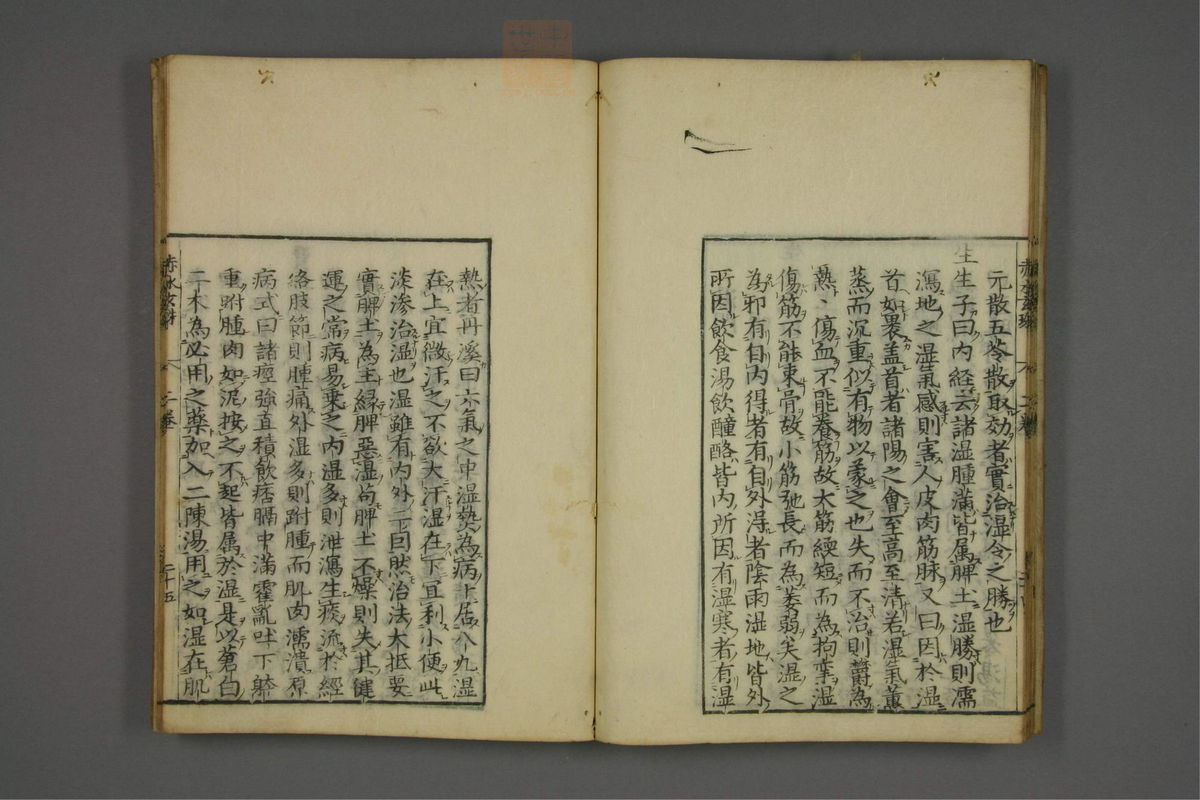 元散五苓散取効者實治湿令之勝也
生生子曰内経云諸湿腫滿皆属脾土湿勝則濡
瀉地之湿氣感則害人皮肉筋脉又曰因於湿
首如褁盖首者諸陽之會至高至清若湿氣薫
蒸而沉重似有物以蒙之也失而不治則欝為
熱〻傷血不能養筋故大筋緛短而為拘攣湿
傷筋不能束骨故小筋弛長而為萎弱矣湿之
為邪有自内得者有自外得者陰雨湿地皆外
所因飲食湯飲醴酪皆内所因有湿寒者有湿
熱者丹溪曰六氣之中湿熱為病十居八九湿
在上宜微汗之不欲大汗湿在下宜利小便此
淡渗治湿也湿雖有内外二因然治法大抵要
實脾土為主縁脾惡湿苟脾土不燥則失其健
運之常病易乗之内湿多則泄瀉生痰流於經
絡肢節則腫痛外湿多則跗腫而肌肉濡潰原
病式曰諸痙強直積飲痞膈中滿霍亂吐下體
重跗腫肉如泥按之不起皆属於湿是以蒼白
二木為必用之藥加入二陳湯用之如湿在肌
赤水玄珠
二巻
二十五